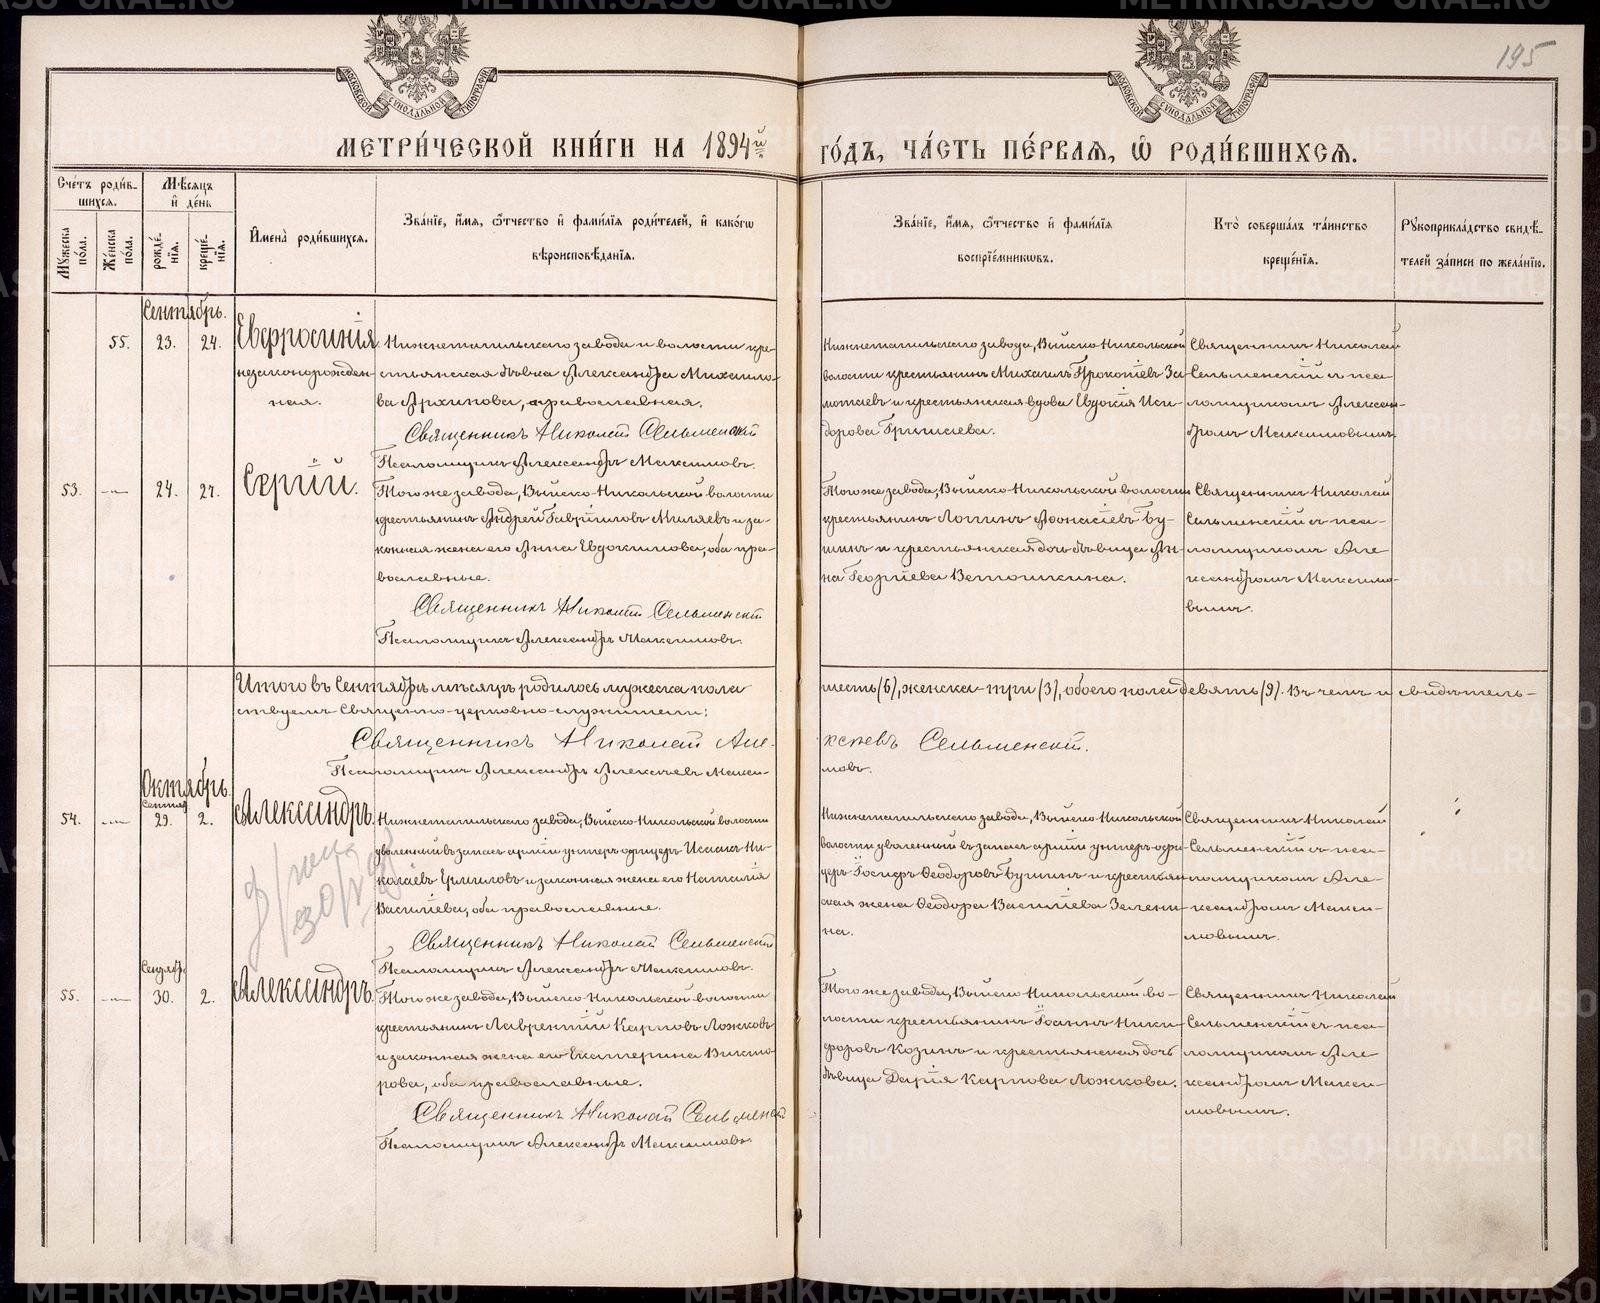 195
МОСКОВСКОЙ СѴНОДАЛЬНОЙ ТИПОГРАФІИ
МОСКОВСКОЙ СѴНОДАЛЬНОЙ ТИПОГРАФІИ
МЕТРИ́ЧЕСКОЙ КНИ́ГИ НА 1894й ГО́ДЪ, ЧА́СТЬ ПЕ́РВАЯ, Ѡ РОДИ́ВШИХСЯ.
Сче́тъ роди́в-
шихся.
Мѣ́сяцъ
и҆ де́нь
Мꙋ́жеска по́ла.
Же́нска по́ла.
рожде́-
нїя.
креще́-
нїя.
И҆мена̀ роди́вшихся.
Зва́нїе, и҆́мя, ѻ҆́тчество и҆ фами́лїя роди́телей, и҆ како́гѡ
вѣроисповѣ́данїя.
Зва́нїе, и҆́мя, ѻ҆́тчество и҆ фами́лїя
воспрїе́мникѡвъ.
Кто̀ соверша́лъ та́инство
креще́нїя.
Рꙋкоприкла́дство свидѣ́-
телей за́писи по жела́нїю.
Сентябрь.
55. 23. 24. Евфросинія
незаконорожден-
ная.
Нижнетагильскаго завода и волости кре-
стьянская дѣвка Александра Михаило-
ва Архипова, православная.
Священникъ Николай Сельменскій
Псаломщикъ Александръ Максимовъ.
Нижнетагильскаго завода, Выйско-Никольской
волости крестьянинъ Михаилъ Прокопіевъ За-
мотаевъ и крестьянская вдова Евдокія Иси-
дорова Гришаева.
Священникъ Николай
Сельменскій съ пса-
ломщикомъ Алексан-
дромъ Максимовымъ.
53. 24. 27. Сергій.
Того же завода, Выйско-Никольской волости
крестьянинъ Андрей Гавріиловъ Миляевъ и за-
конная жена его Анна Евдокимова, оба пра-
вославные.
Священникъ Николай Сельменскій
Псаломщикъ Александръ Максимовъ.
Того же завода, Выйско-Никольской волости
крестьянинъ Логинъ Афонасіевъ Бу-
шинъ и крестьянская дочь дѣвица Ан-
на Георгіева Ветошкина.
Священникъ Николай
Сельменскій съ пса-
ломщикомъ Але-
ксандромъ Максимо-
вымъ.
Итого въ Сентябрѣ мѣсяцѣ родилось мужеска пола шесть (6), женска - три (3), обоего пола девять (9). Въ чемъ и свидѣтель-
ствуемъ Священно-церковно-служители:
Священникъ Николай Але- ксѣевъ Сельменскій.
Псаломщикъ Александръ Алексѣевъ Макси- мовъ.
Октябрь.
Сентяб.
54. 29. 2. Александръ.
Нижнетагильскаго завода, Выйско-Никольской волости
уволенный въ запасъ арміи унтеръ-офицеръ Исаакъ Ни-
колаевъ Ермиловъ и законная жена его Наталія
Василіева, оба православные.
Священникъ Николай Сельменскій
Псаломщикъ Александръ Максимовъ.
Нижнетагильскаго завода, Выйско-Никольской
волости уволенный въ запасъ арміи унтеръ-офи-
церъ Іосифъ Ѳеодоровъ Бушинъ и крестьян-
ская жена Ѳеодора Василіева Зелени-
на.
Священникъ Николай
Сельменскій съ пса-
ломщикомъ Але-
ксандромъ Макси-
мовымъ.
Сентябр.
55. 30. 2. Александръ.
Того же завода, Выйско-Никольской волости
крестьянинъ Лаврентій Карповъ Ложковъ
и законная жена его Екатерина Викто-
рова, оба православные.
Священникъ Николай Сельменскій
Псаломщикъ Александръ Максимовъ.
Того же завода, Выйско-Никольской во-
лости крестьянинъ Іоаннъ Ники-
форовъ Козинъ и крестьянская дочь
дѣвица Дарія Карпова Ложкова.
Священникъ Николай
Сельменскій съ пса-
ломщикомъ Але-
ксандромъ Макси-
мовымъ.
METRIKI.GASO-URAL.RU